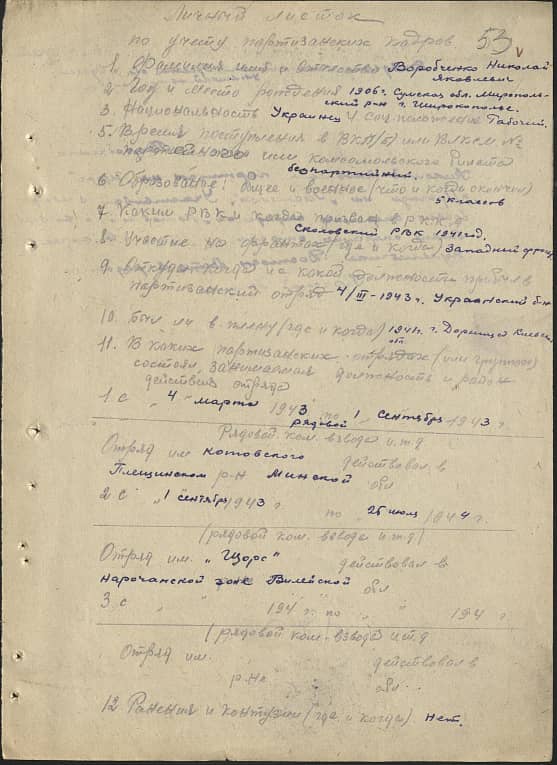 Личный листок
по учету партизанских кадров 53
1. Фамилия имя и отчество Воробченко Николай
Яковлевич
2. Год и место рождения 1906г. Сумская обл. Мирополь-
ский р-н г.
3. Национальность Украинец 4 Соц. положение Рабочий.
5. Время поступления в ВКП(б) или ВЛКСМ №
партийного или комсомольского билета
беспартийный.
6. Образование: общее и военное (что и когда окончил)
5 классов
7. Каким РВКм когда призван в РККА
РВК 1941 год.
8. Участие на фронтах (где и когда) Западный фронт
9. Откуда когда и с какой должности прибыл в
партизанский отряд 4/III-1943г. Украинский б-н
10. Был ли в плену (где и когда) 1941г. г.
11. В каких партизанских отрядах (или группах)
состоял, занимаемая должность и район
действия отряда
1 с "4" марта 1943 по 1 сентябрь 1943 г
рядовой
Рядовой ком. взвода и.т.д
Отряд им Котовского действовал в
Плещинском р-н Минской обл
2 с "1 сентябрь 1943 г по 25 июль 1944 г.
(рядовой ком. взвода и.т.д)
Отряд им. "Щорс" действовал в
Нарочанской зоне Вилейской обл
3 с " " 194 г. по " " 194 г
(рядовой ком. взвода и.т.д
Отряд им. действовал в
р-не обл.
12 Ранения и контузии (где и когда) нет.